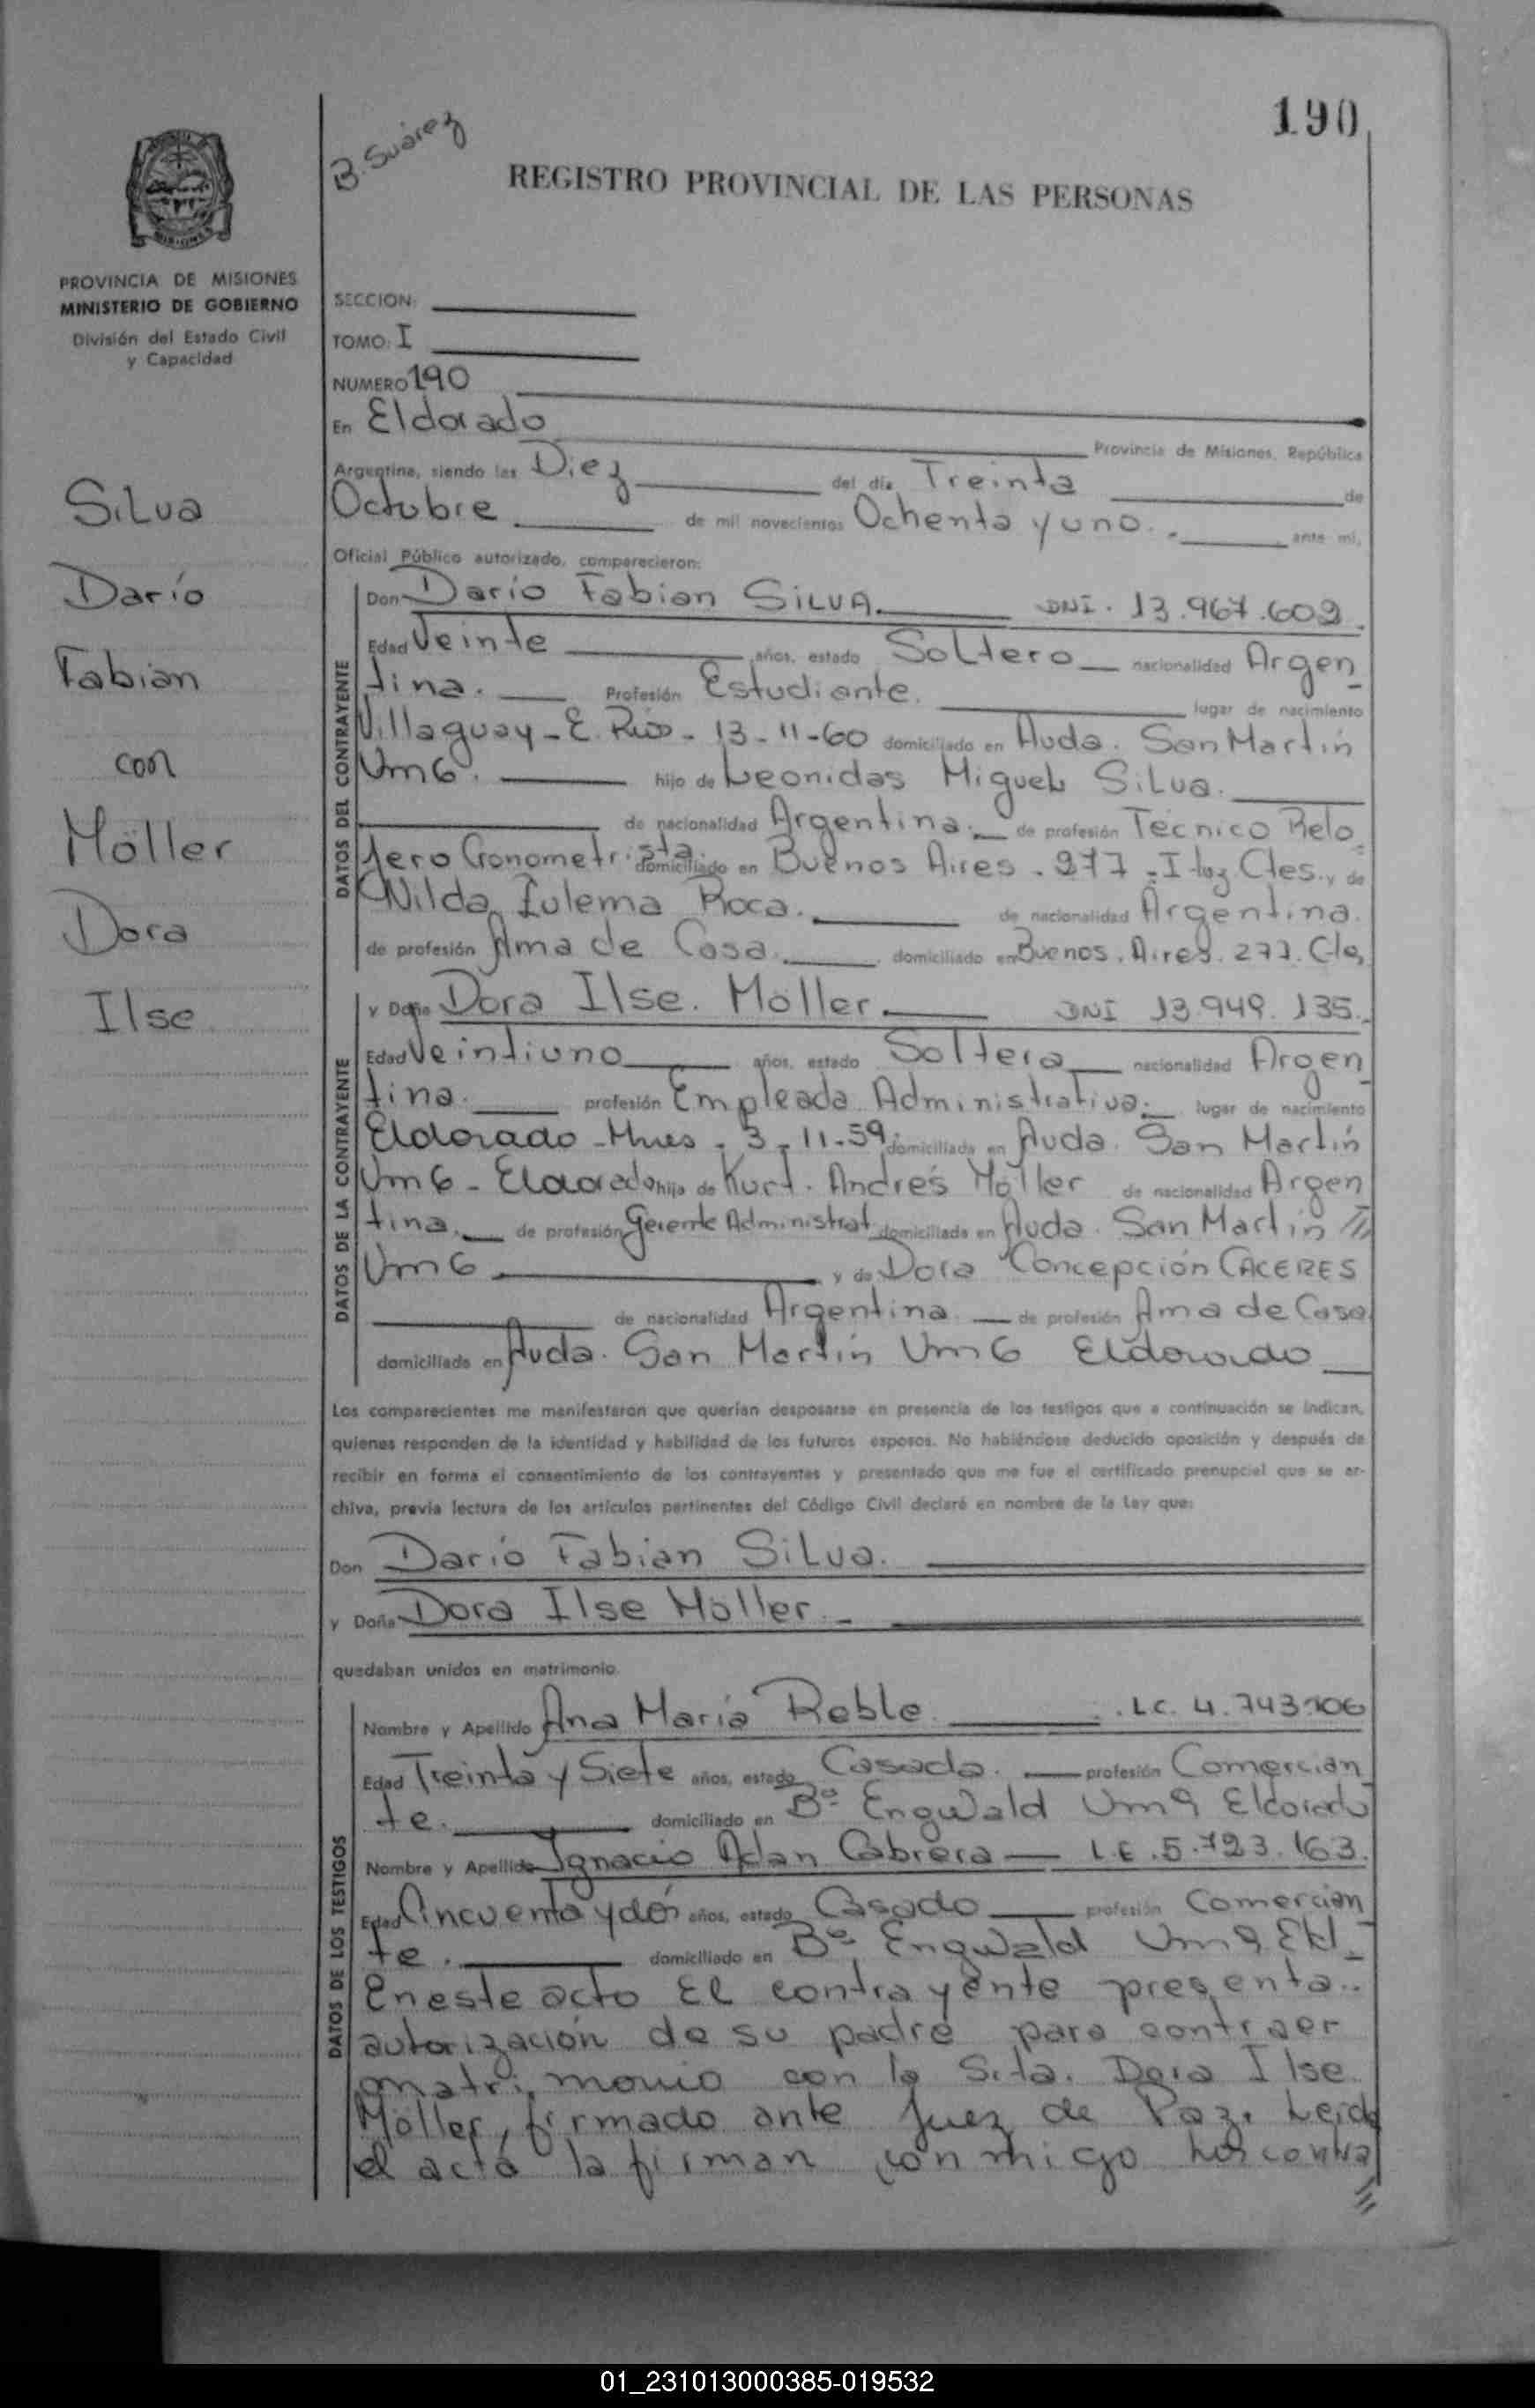 190
B. Suárez
REGISTRO PROVINCIAL DE LAS PERSONAS
MISIONES
PROVINCIA DE MISIONES
MINISTERIO DE GOBIERNO
División del Estado Civil
y Capacidad
Silva
Darío
Fabian
con
Möller
Dora
Ilse
SECCION:
TOMO: I
NUMERO 190
En Eldorado Provincia de Misiones, República
Argentina, siendo las Diez del día Treinta de
Octubre de mil novecientos Ochenta y uno. ante mi,
Oficial Público autorizado, comparecieron:
DATOS DEL CONTRAYENTE
Don Darío Fabian SILVA. DNI. 13.967.602.
Edad Veinte años, estado Soltero nacionalidad Argen
tina. Profesión Estudiante. lugar de nacimiento
Villaguay - E. Ríos - 13-11-60 domiciliado en Avda. San Martín
Km6. hijo de Leonidas Miguel Silva.
de nacionalidad Argentina. de profesión Técnico Relo
jero Cronometrista. domiciliado en Buenos Aires. 277 - Ituz Ctes. y de
Nilda Zulema Roca. de nacionalidad Argentina.
de profesión Ama de Casa. domiciliado en Buenos. Aires. 277. Cte,
DATOS DE LA CONTRAYENTE
y Doña Dora Ilse. Möller DNI 13.949.135.
Edad Veintiuno años, estado Soltera nacionalidad Argen
tina. profesión Empleada Administrativa. lugar de nacimiento
Eldorado - Mnes - 3-11-59 domiciliada en Avda. San Martín
Km6 - Eldorado hija de Kurt. Andrés Möller de nacionalidad Argen
tina. de profesión Gerente Administrat domiciliada en Avda. San Martín
Km6 y de Dora Concepción CACERES
de nacionalidad Argentina. de profesión Ama de Casa
domiciliada en Avda. San Martín Km6 Eldorado
Los comparecientes me manifestaron que querían desposarse en presencia de los testigos que a continuación se indican,
quienes responden de la identidad y habilidad de los futuros esposos. No habiéndose deducido oposición y después de
recibir en forma el consentimiento de los contrayentes y presentado que me fue el certificado prenupcial que se ar-
chiva, previa lectura de los artículos pertinentes del Código Civil declaré en nombre de la Ley que:
Don Darío Fabian Silva.
y Doña Dora Ilse Möller.
quedaban unidos en matrimonio.
DATOS DE LOS TESTIGOS
Nombre y Apellido Ana María Reble. L.C. 4.743.106
Edad Treinta y Siete años, estado Casada. profesión Comercian
te. domiciliado en Bº Engwald Km9 Eldorado
Nombre y Apellido Ignacio Adan Cabrera L.E. 5.723.163.
Edad Cincuenta y dos años, estado Casado profesión Comercian
te. domiciliado en Bº Engwald Km9 Eld.
En este acto El contrayente presenta..
autorización de su padre para contraer
matrimonio con la Srta. Dora Ilse
Möller, firmado ante Juez de Paz. Leida
el acta la firman conmigo los contra
01_231013000385-019532